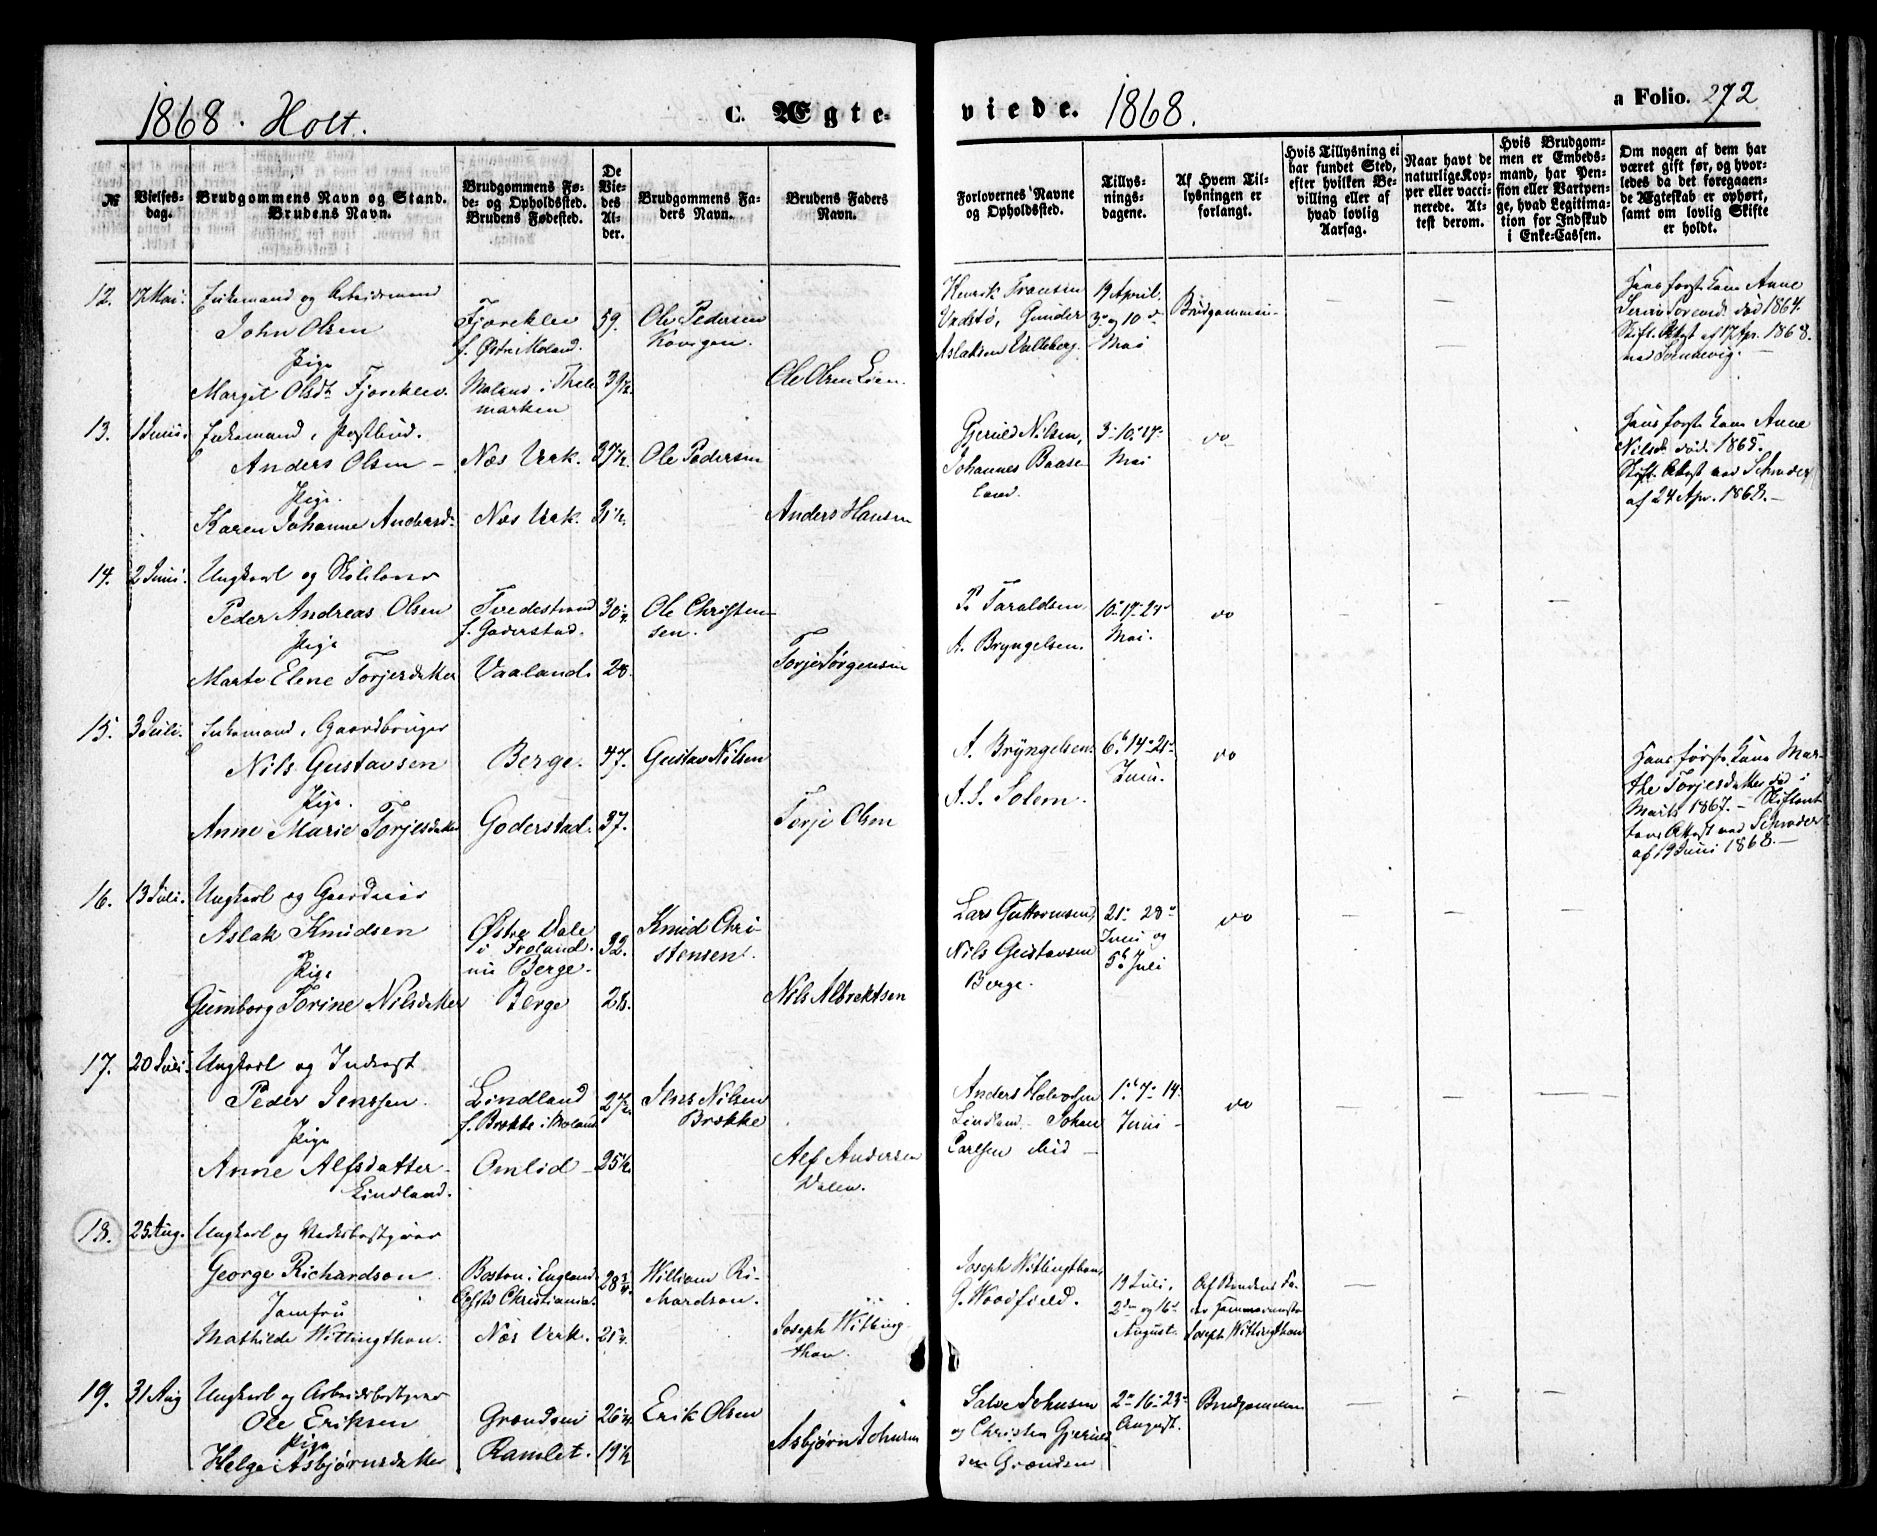 1868. Holt.
C. Ægte-
viede.
1868.
a Folio. 272
№
Vielses-
dag.
Brudgommens Navn og Stand.
Brudens Navn.
Brudgommens Fø-
de- og Opholdsted.
Brudens Fødested.
De
Vie-
des
Al-
der.
Brudgommens Fa-
ders Navn.
Brudens Faders
Navn.
Forlovernes Navne
og Opholdsted.
Tillys-
nings-
dagene.
Af Hvem Til-
lysningen er
forlangt.
Hvis Tillysning ei
har fundet Sted,
efter hvilken Be-
villing eller af
hvad lovlig
Aarsag.
Naar havt de
naturlige Kop-
per eller vacci-
nerede. At-
test derom.
Hvis Brudgom-
men er Embeds-
mand, har Pen-
sion eller Vartpen-
ge, hvad Legitima-
tion for Indskud
i Enke-Cassen.
Om nogen af dem har
været gift før, og hvor-
ledes da det foregaaen-
de Ægteskab er ophørt,
samt om lovlig Skifte
er holdt.
12. 17 Mai. Enkemand og Arbeidsmand
John Olsen
Pige
Margit Olsdt. Fjæreklev.
Fjæreklev
f. Østre Moland.
Moland i Thele
marken
59.
39½
Ole Pedersen
Ole Olsen Lien.
Henrik Fransen
Vadstø, Gunder
Aslaksen Valleberg.
19 April.
3. og 10de
Mai
Brudgommen
Hans første Kone Anne
død 1864.
Skift. Attest af 17 Apr. 1868.
13. 1 Juni. Enkemand, Postbud.
Anders Olsen
Pige.
Karen Johanne Andersd.
Næs Værk.
Næs Værk.
37½
31½
Ole Pedersen
Anders Hansen
Gjeruld Nilsen,
Johannes Baase-
land.
3. 10. 17.
Mai
do
Hans første Kone Anne
Nilsd. død. 1865.
Skift. Attest ved Schrøder
af 24 Apr. 1868.
14. 2 Juni. Ungkarl og Skolelærer
Peder Andreas Olsen
Pige
Marte Elene Torjesdatter
Tvedestrand
f. Gaderstad.
Vaaland.
30¼
28.
Ole Christen-
sen.
Torje Jørgensen
P. Taraldsen,
A. Bryngelsen.
10. 17. 24.
Mai.
do
15. 3 Juli. Enkemand, Gaardbruger
Nils Gustavsen
Pige.
Anne Marie Torjesdatter
Berge.
Goderstad.
47.
37.
Gustav Nilsen
Torje Olsen
A. Bryngelsen.
A. S. Solem.
6. 14. 21.
Juni.
do
Hans første Kone Mar-
the Torjesdatter død i
Marts 1867. Skiftent
Attest ved Schrøder
af 19 Juni 1868.
16. 13 Juli. Ungkarl og Gaardeier
Aslak Knudsen
Pige
Gumborg Torine Nilsdatter
Østre Dale
i Froland.
nu Berge.
Berge
32.
28.
Knud Chri-
stensen.
Nils Albrektsen
Lars Guttormsen,
Nils Gustavsen
Berge.
21. 28.
Juni og
5. Juli
do
17. 20 Juli. Ungkarl og Inderst
Peder Jenssen.
Pige
Anne Alfsdatter
Lindland.
Lindland
f. Brække i Moland
Omlid
27½
25½
Jens Nilsen
Brække
Alf Andersen
Dalen.
Anders Halvorsen
Lindland. Johan
Carlsen ibid
1. 7. 14.
Juni
do
18. 25 Aug. Ungkarl og
George Richardson.
Jomfru
Mathilde Witlingthon.
Boston i England.
Christiania.
Næs Værk.
28¾
21¼
William Ri-
chardson.
Joseph Witling-
thon.
Joseph Witlingthon,
G. Woodfield.
19 Juli,
2den og 16.
August.
Af Brudens Fa-
der Hammermester
Joseph Witlingthon
19. 31 Aug Ungkarl og
Ole Eriksen
Pige
Helge Asbjørnsdatter
Grændsen
Ramlet.
26¼
19½
Erik Olsen
Asbjørn Johnsen
Salve Johnsen
og Christen Gjeruld-
sen Grændsen
2. 16. 23.
August.
Brudgommen